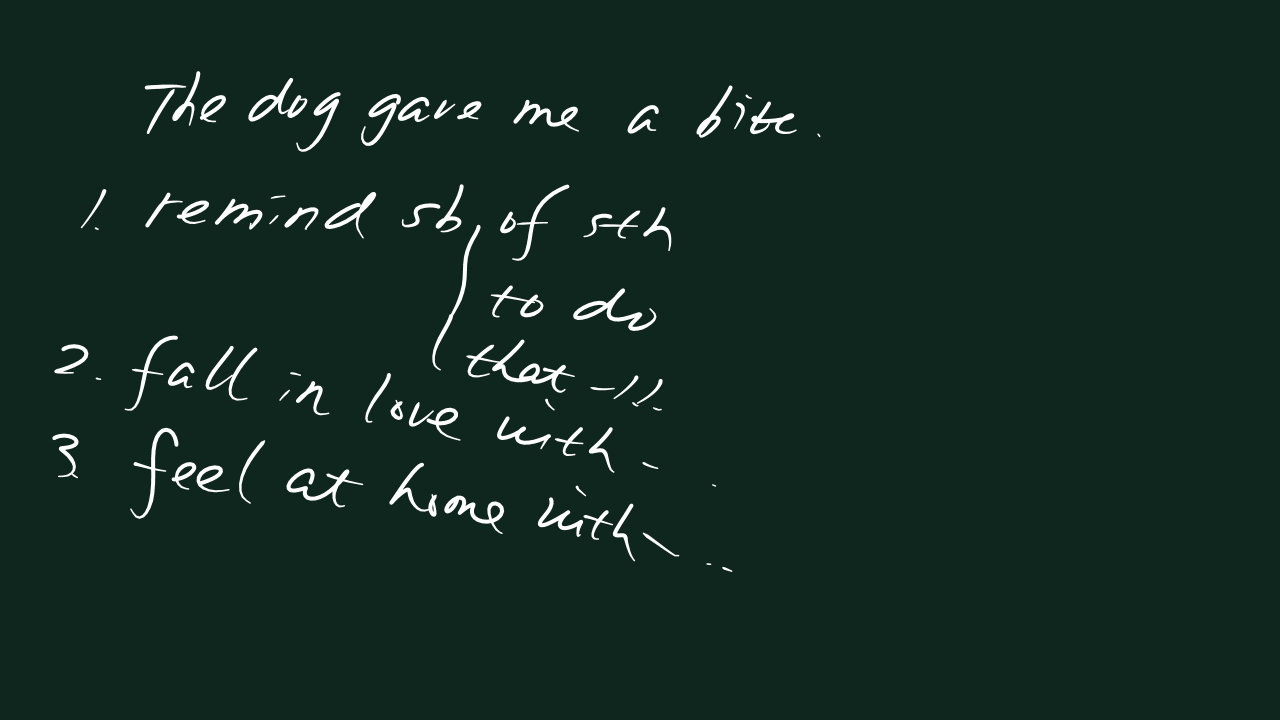 The dog gave me a bite.
1. remind sb of sth
to do
that ...
2. fall in love with ...
3 feel at home with ...